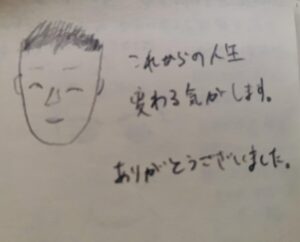 これからの人生
変わる気がします。
ありがとうございました。